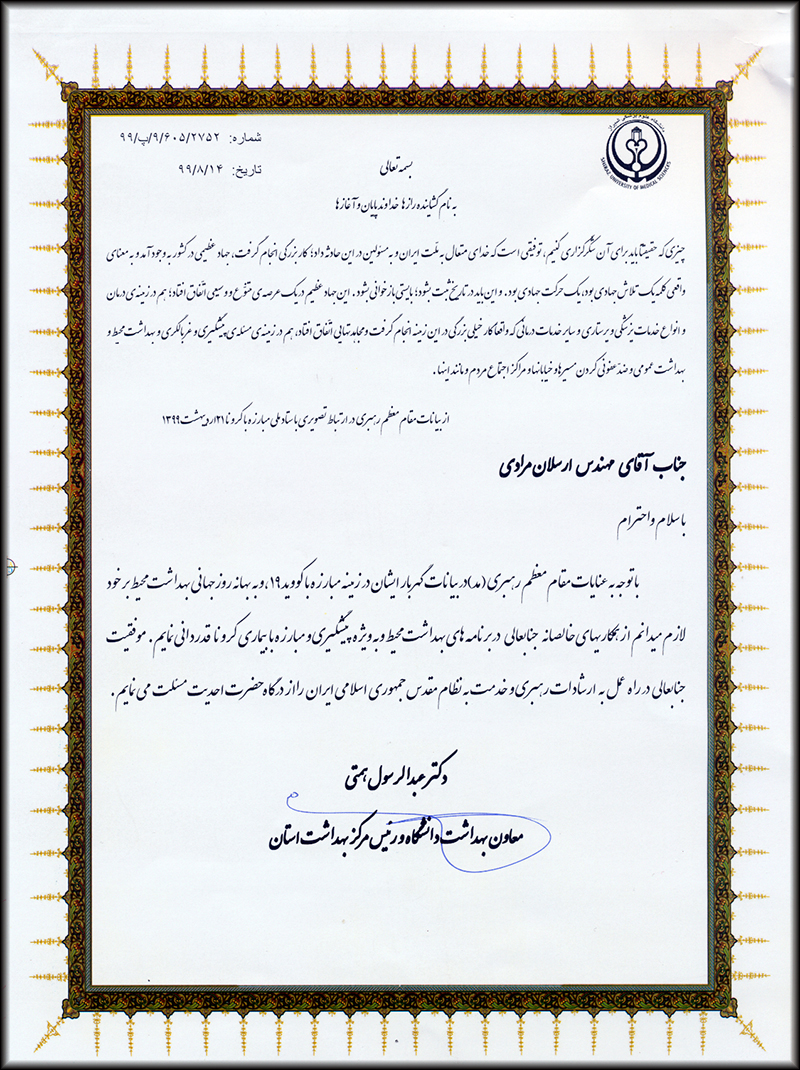 دانشگاه علوم پزشکی شیراز
SHIRAZ UNIVERSITY OF MEDICAL SCIENCES
شماره: ۹۹/پ/۹/۶۰۵/۲۷۵۲
تاریخ: ۹۹/۸/۱۴
بسمه تعالی
به نام گشاینده رازها خداوند پایان و آغازها
چیزی که حقیقتاً باید برای آن شکرگزاری کنیم، توفیقی است که خدای متعال به ملّت ایران و به مسئولین در این حادثه داد؛ کار بزرگی انجام گرفت، جهاد عظیمی در کشور به وجود آمد و به معنای
واقعی کلمه یک تلاش جهادی بود، یک حرکت جهادی بود. و این باید در تاریخ ثبت بشود؛ بایستی بازخوانی بشود. این جهاد عظیم در یک عرصه ی متنوّع و وسیعی اتّفاق افتاد؛ هم در زمینه ی درمان
و انواع خدمات پزشکی و پرستاری و سایر خدمات درمانی که واقعا کار خیلی بزرگی در این زمینه انجام گرفت و مجاهدتهایی اتّفاق افتاد، هم در زمینه ی مسئله ی پیشگیری و غربالگری و بهداشت محیط و
بهداشت عمومی و ضدّعفونی کردن مسیرها و خیابانها و مراکز اجتماع مردم و مانند اینها.
از بیانات مقام معظم رهبری در ارتباط تصویری با ستاد ملی مبارزه با کرونا ۲۱اردیبهشت ۱۳۹۹
جناب آقای مهندس ارسلان مرادی
با سلام و احترام
با توجه به عنایات مقام معظم رهبری (مد)در بیانات گهربار ایشان در زمینه مبارزه با کووید ۱۹، و به بهانه روز جهانی بهداشت محیط بر خود
لازم میدانم از همکاریهای خالصانه جنابعالی در برنامه های بهداشت محیط و به ویژه پیشگیری و مبارزه با بیماری کرونا قدردانی نمایم. موفقیت
جنابعالی در راه عمل به ارشادات رهبری و خدمت به نظام مقدس جمهوری اسلامی ایران را از درگاه حضرت احدیت مسئلت می نمایم.
دکتر عبدالرسول همتی
معاون بهداشت دانشگاه و رئیس مرکز بهداشت استان